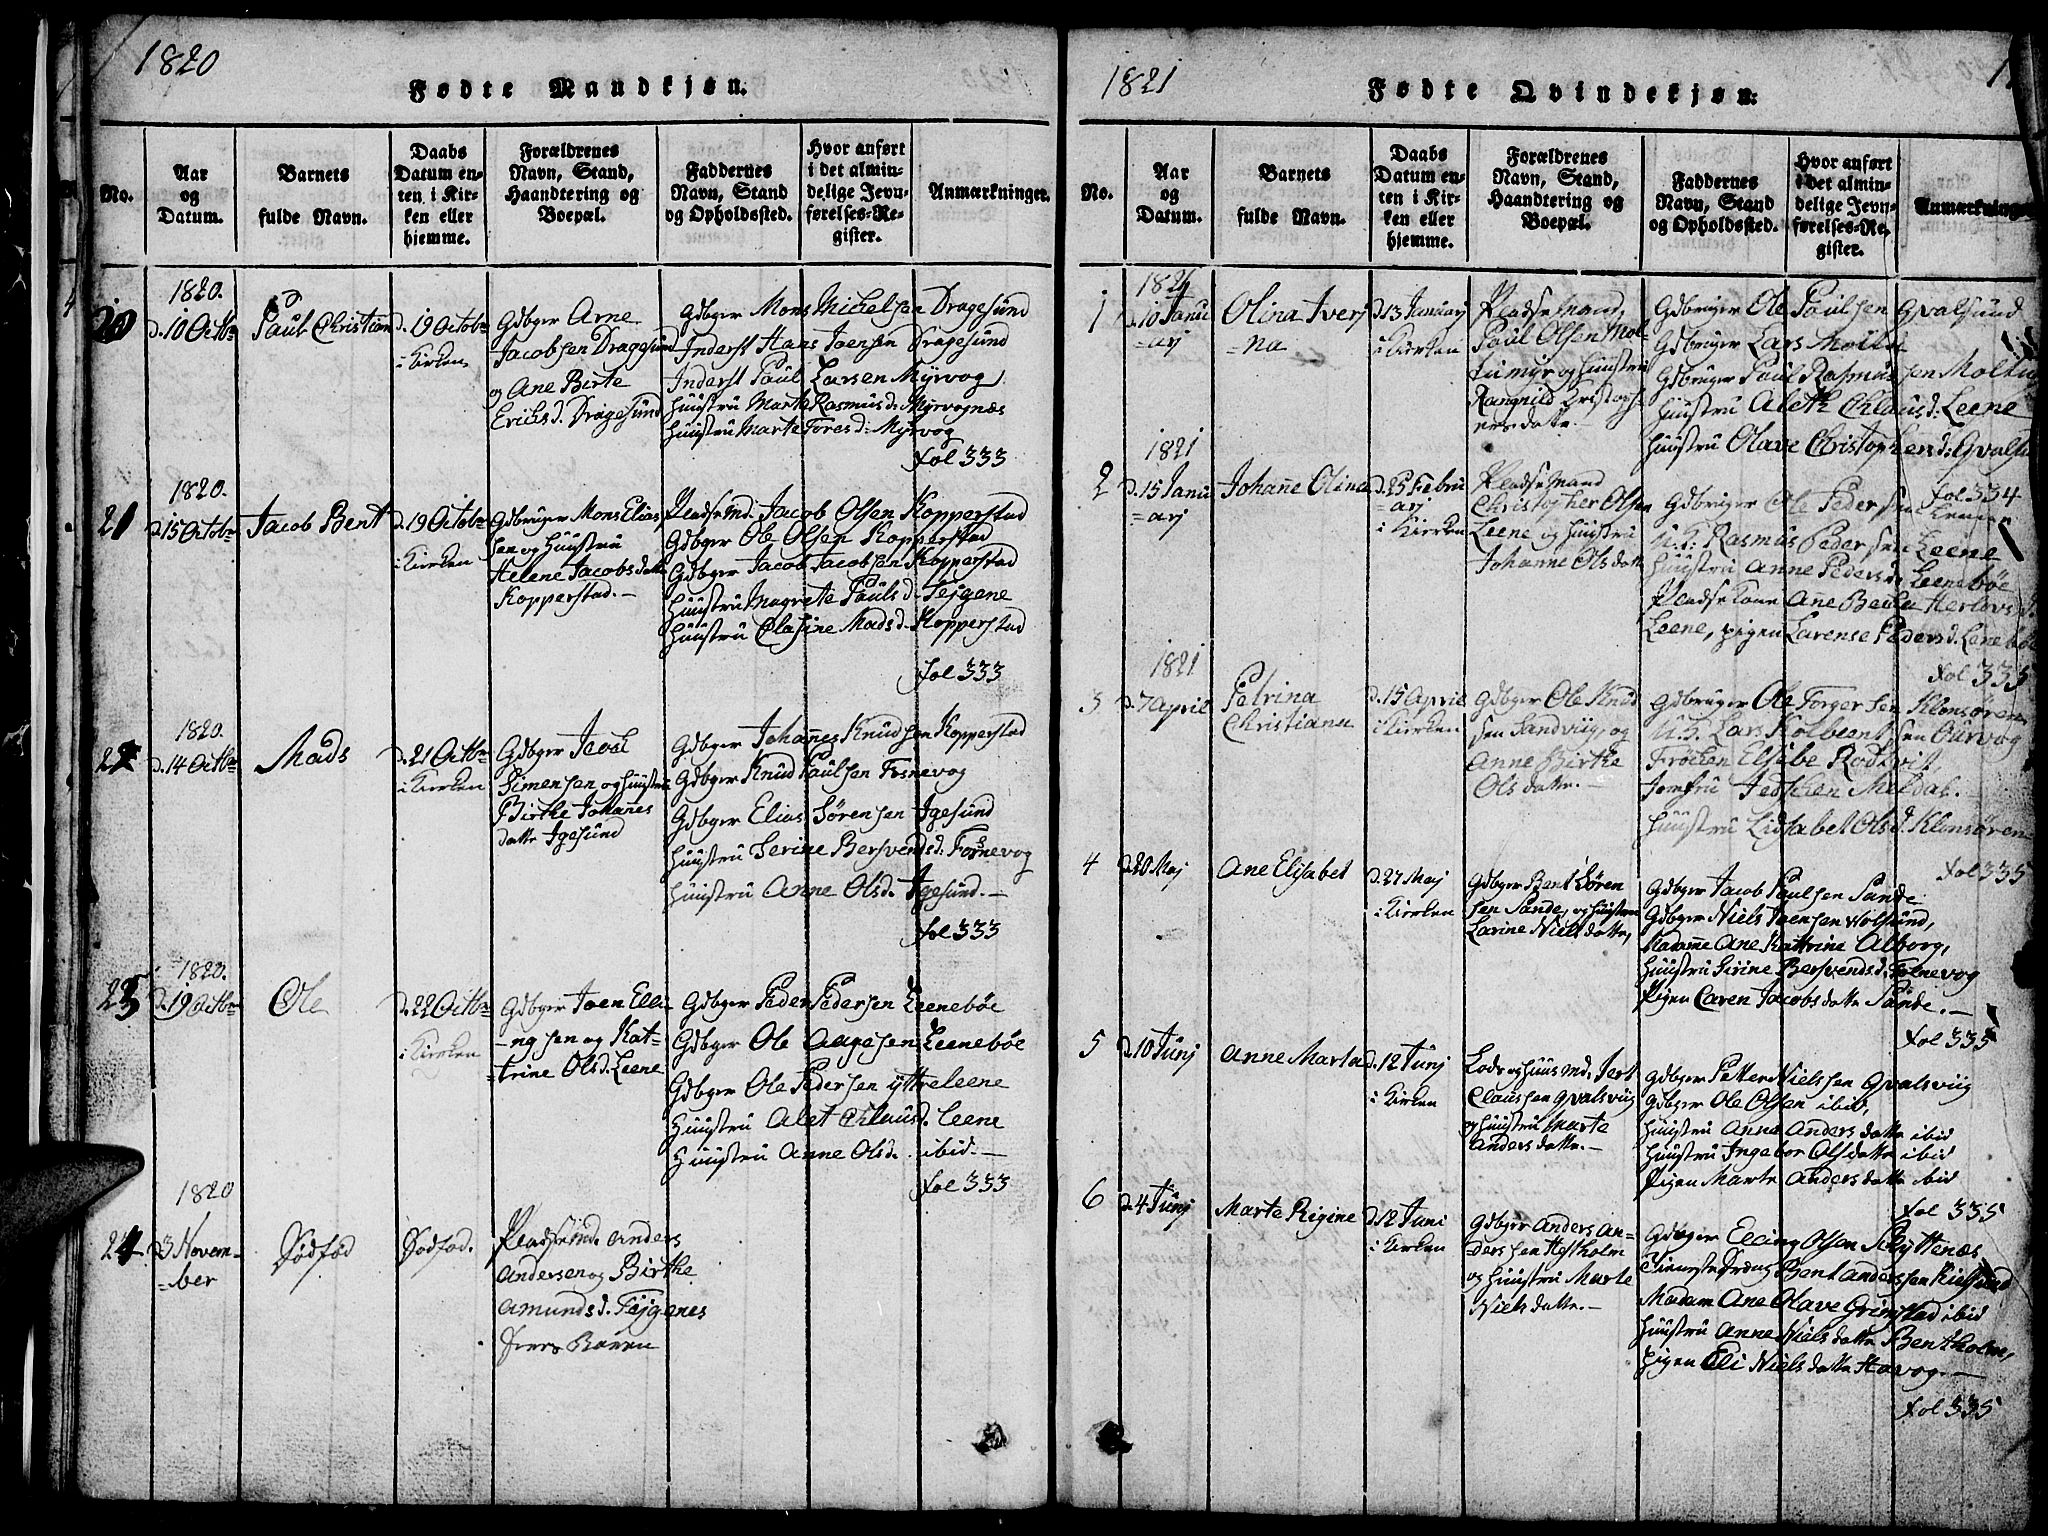 1820
Fødte Mandkjøn.
No.
Aar
og
Datum.
Barnets
fulde Navn.
Daabs
Datum en-
ten i Kir-
ken eller
hjemme.
Forældrenes
Navn, Stand,
Haandtering og
Boepæl.
Faddernes
Navn, Stand
og Opholdssted.
Hvor anført
i det almin-
delige Jevn-
førelses-Re-
gister.
Anmærkninger.
20
1820.
d. 10 Octbr
Paul Christian
d. 19 Octobr
i Kirken
Gdbger Arne
Jacobsen Dragesund
og Ane Birte
Ericksd. Dragesund
Gdbger Mons Michelsen Dragesund
Inderst Hans Joensen Dragesund
Inderst Paul Larsen Myrvog
Huustru Marte Rasmusd: Myrvognæs
Huustru Marte Toresd: Myrvog
fol 333
21
1820.
d. 15 Octobr
Jacob Bent
d. 19 Octobr
i Kirken
Gdbruger Mons Elias
sen og Huustru
Helene Jacobsdatte
Kopperstad.-
Pladsemd. Jacob Olsen Kopperstad
Gdbger Ole Olsen Kopperstad
Gdbger Jacob Jacobsen Kopperstad
Huustru Magrete Paulsd. Tejgene
Huustru Olasine Madsd. Kopperstad
fol 333
22
1820.
d. 14 Octbr
Mads
d. 21 Octbr
i Kirken
Gdbger Joel
Simensen og Huustru
Birthe Johannes
datte Igesund
Gdbger Johanes Knudsen Kopperstad
Gdbger Knud Paulsen Fosnevog
Gdbger Elias Sørensen Igesund
Huustru Serine Bersvendsd. Fosnevog
Huustru Anne Olsd. Igesund.-
fol 333
23
1820.
d. 19 Octbr
Ole
d. 22 Octbr
i Kirken
Gdbger Joen Elli
-ngsen og Kat-
-trine Olsd. Leene
Gdbger Peder Pedersen Leenebøe
Gdbger Ole Aagesen Leenebøe
Gdbger Ole Pedersen yttreleene
Huustru Alet Chlausd. Leene
Huustru Anne Olsd. ibid.-
fol 333
24
1820
d. 3 Novem-
-ber
Dødfød
Dødfød.
Pladsemd. Anders
Andersen og Birthe
Amundsd. Tejgenes
1821
Fødte Qvindekjøn:
No.
Aar
og
Datum.
Barnets
fulde Navn.
Daabs
Datum en-
ten i Kir-
ken eller
hjemme.
Forældrenes
Navn, Stand,
Haandtering og
Boepæl.
Faddernes
Navn, Stand
og Opholdssted.
Hvor anført
i det almin-
delige Jevn-
førelses-Re-
gister.
Anmærkninger
1
1821
d. 10 Janu
arj
Olina Ivers
=na
d. 13 Januarj
i Kirken
Pladsemand,
Paul Olsen Mol-
tumyr og Huustru
Rangnild Christophe
rersdatte.-
Gdbruger Ole Paulsen Qvalsund
Gdbruger Lars Moltu
Gdbruger Paul Rasmussen Moltu
Huustru Aleth Chlausd: Leene
Huustru Olave Christophersd: Qvalsu
fol 334
2
1821
d. 15 Janu
=arj
Johane Olina
d. 25 Febru
=arj
i Kirken
Pladsemand
Christopher Olsen
Leene og Huustru
Johanne Olsdatte
Gdbruger Ole Pedersen Leene
U.K: Rasmus Pedersen Leene
Huustru Anne Pedersd. Leenebøe
Pladsekone Ane Berta Herlovsd.
Leene, pigen Larense Pedersd. Lenebøe
fol 335
3
1821
d. 7 April
Petrina
Christiana
d. 15 April
i Kirken
Gdbger Ole Knud
sen Sandviig, og
Anne Birthe
Olsdatte.-
Gdbruger Ole Torgersen Klonsøren
U.K. Lars Kolbeentsen Aurvog
Frøcken Elsebe Rodtvit,
Jomfru Jedschen Meldal.-
Huustru Lidsabet Olsd. Klonsøren
fol 335
4
d. 20 Maj
Ane Elisabet
d. 27 Maj
i Kirken
Gdbger Bent Søren
sen Sande, og Huustru
Larine Nielsdatte,
Gdbger Jacob Paulsen Sande
Gdbger Niels Joensen Wolsund,
Madame Ane Kattrine Alborg,
Huustru Sirine Bersvendsd. Folnevog
Pigen Caren Jacobsdatte Sande.-
fol 335
5
d. 10 Junj
Anne Marta
d. 12 Junj
i Kirken
Lods og Huusmd. Jert
Claussen Qvalsviig
og Huustru Marte
Andersdatte.-
Gdbger Petter Nielssen Qvalsviig
Gdbger Ole Olsen ibid,
Huustru Anne Andersdatte ibid
Huustru Ingebor Olsdatte ibid
Pigen Marte Andersdatte ibid
fol 335
6
d. 4 Junj
Marte Rigine
d. 12 Juni
i Kirken
Gdbger Anders An-
=derssen Hestholm
og Huustru Marte
Nielsdatte.-
Gdbger Elling Olsen Skyttenæs
Tienestedreng Bent Anderssen Kielsund
Madam Ane Olave Grimstad ibid
Huustru Anne Nielsdatte Bentholm,
Pigen Eli Nielsdatte Havog.-
fol 335